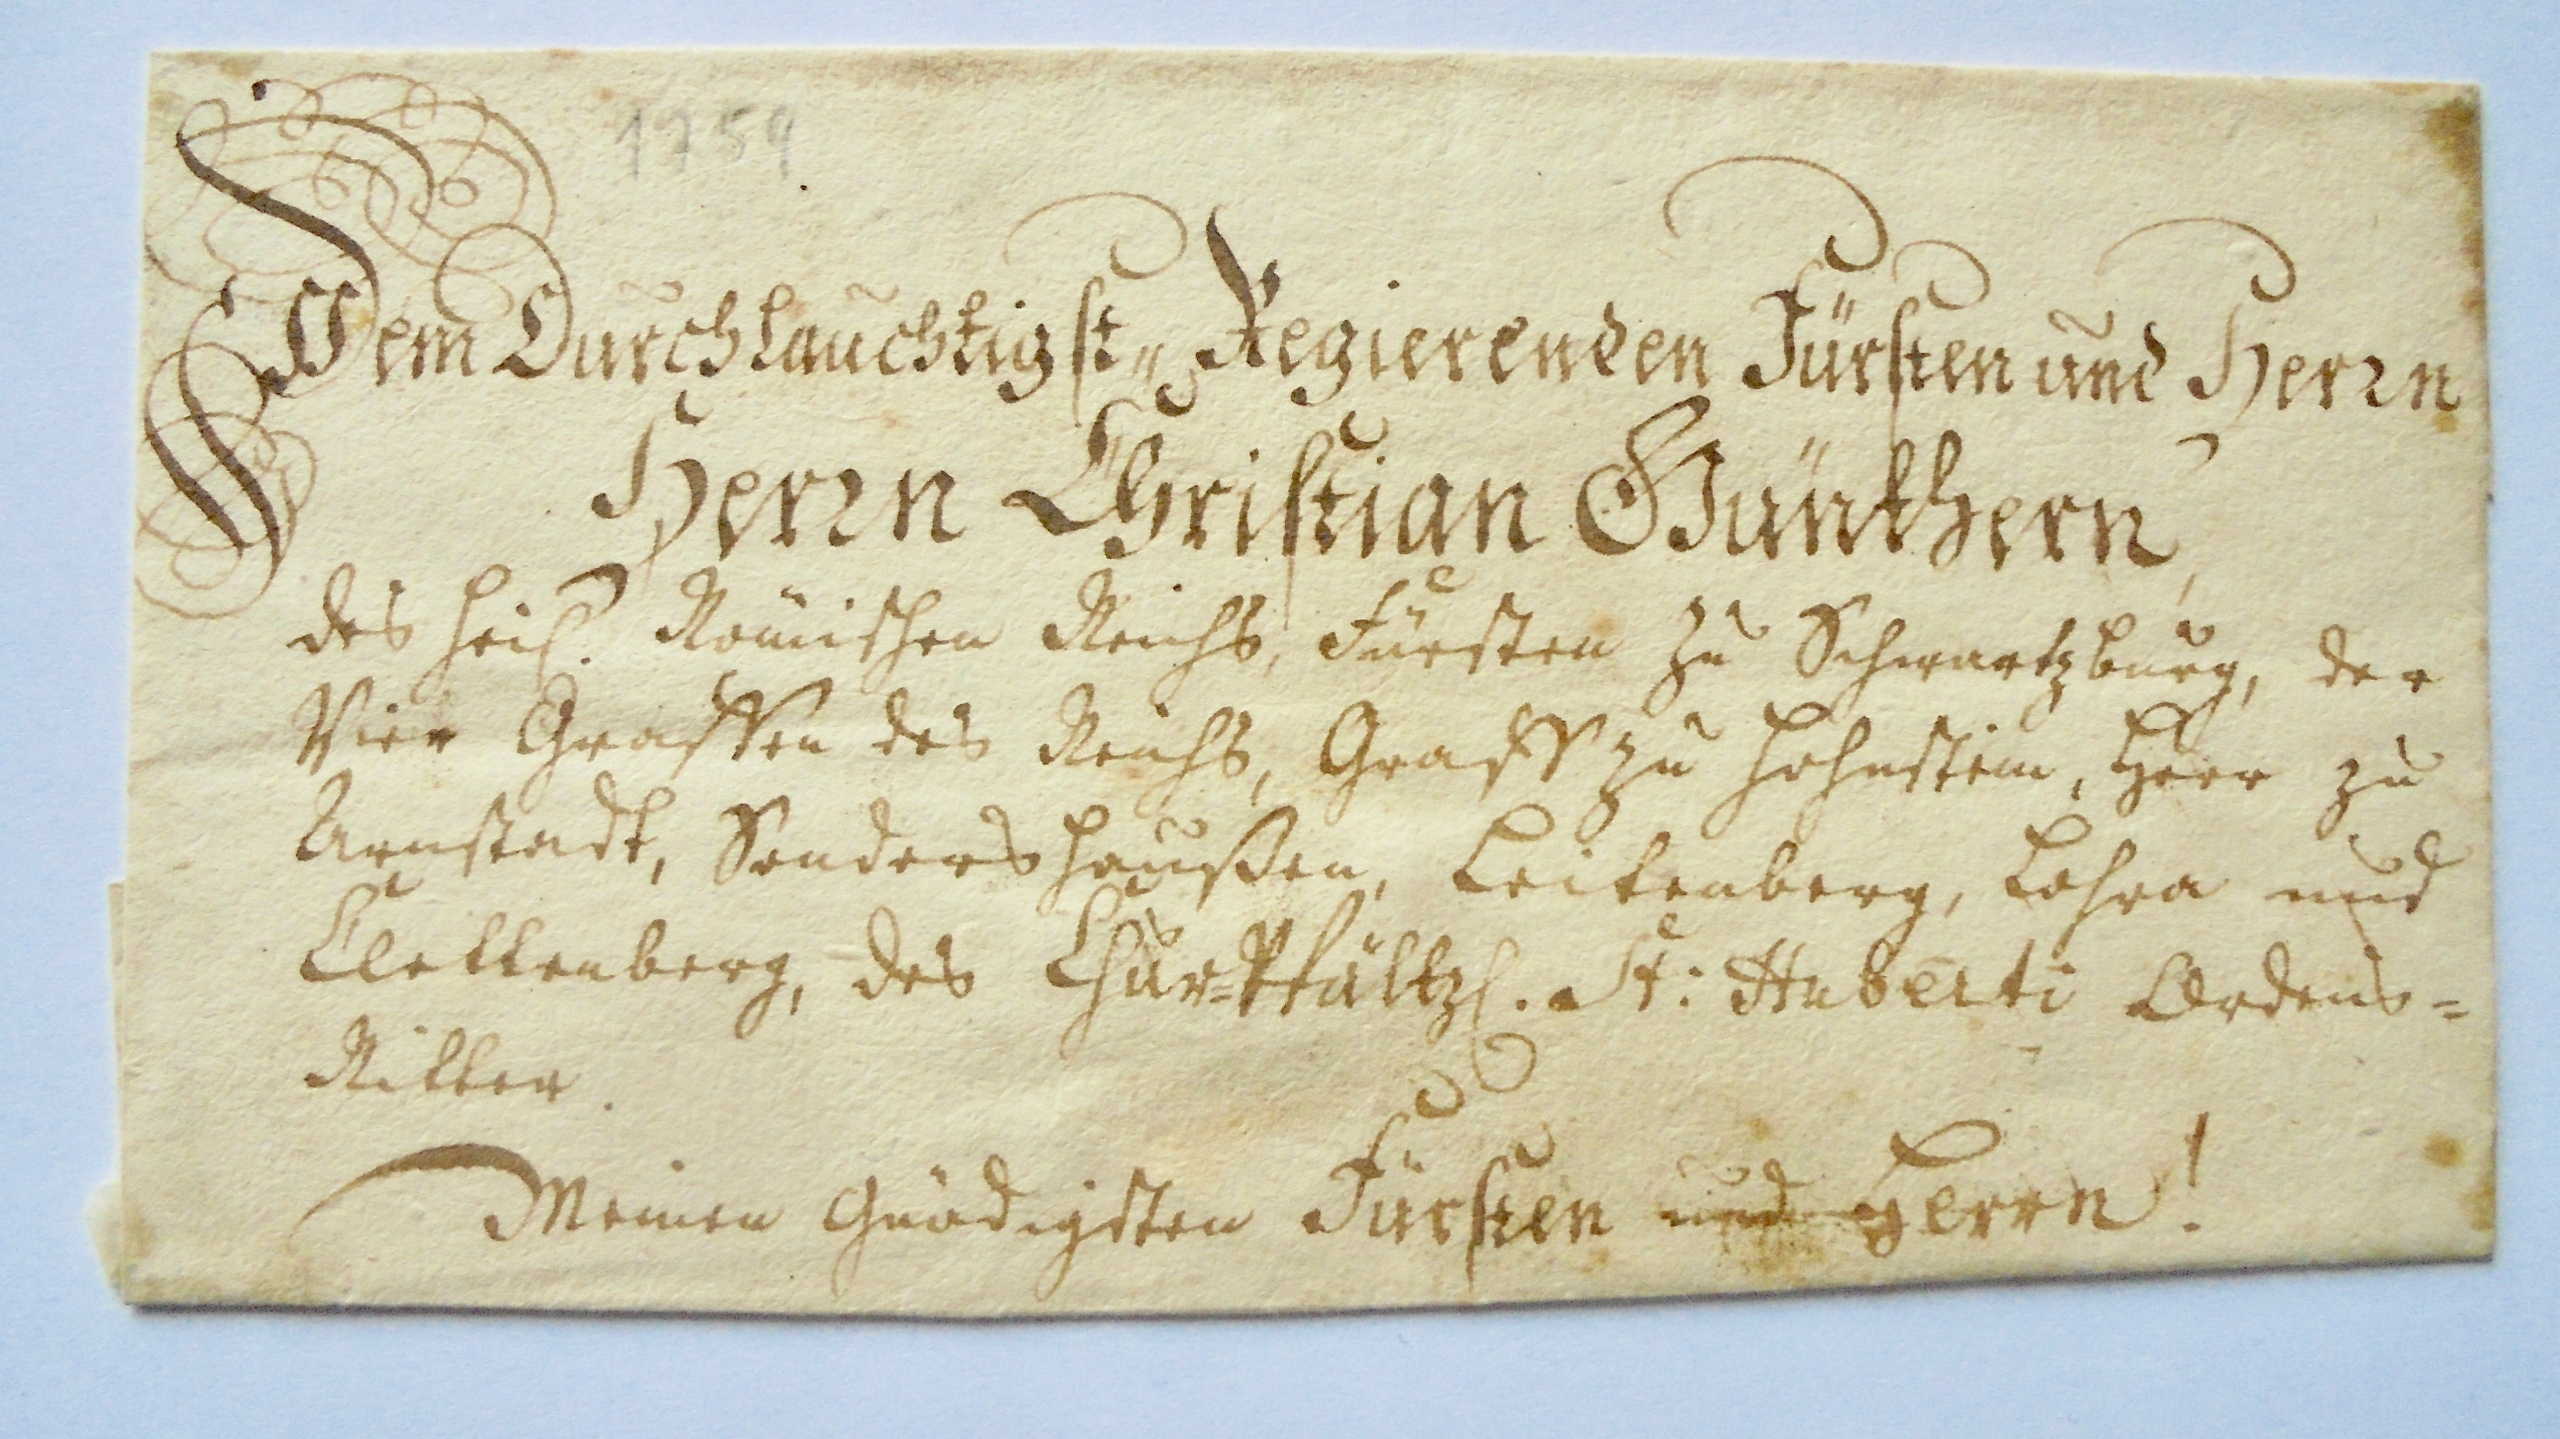 1759
Dem Durchlauchtigst„ Regierenden Fürsten und Herrn
Herrn Christian Günthern,
des Heil. Römischen Reichs, Fürsten zu Schwartzburg, der
Vier Graffen des Reichs, Graff zu Hohnstein, Herr zu
Arnstadt, Sondershaußen, Leitenberg, Lohra und
Clettenberg, des Chur-Pfältzl. St: Huberti Ordens=
Ritter.
Meinen Gnädigsten Fürsten und Herrn!